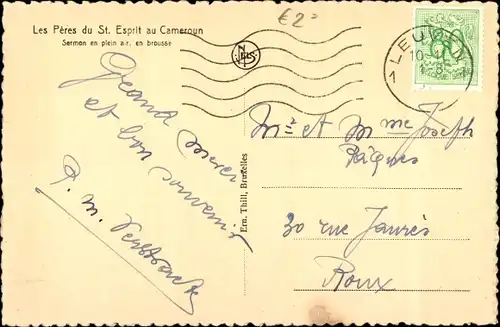 Les Pères du St. Esprit au Cameroun
Sermon en plein air, en brousse
€ 2
Grand merci
et bon souvenir
Ern. Thill, Bruxelles
Mr et Mme Joseph
Pâques
30 rue Jaurès
Roux